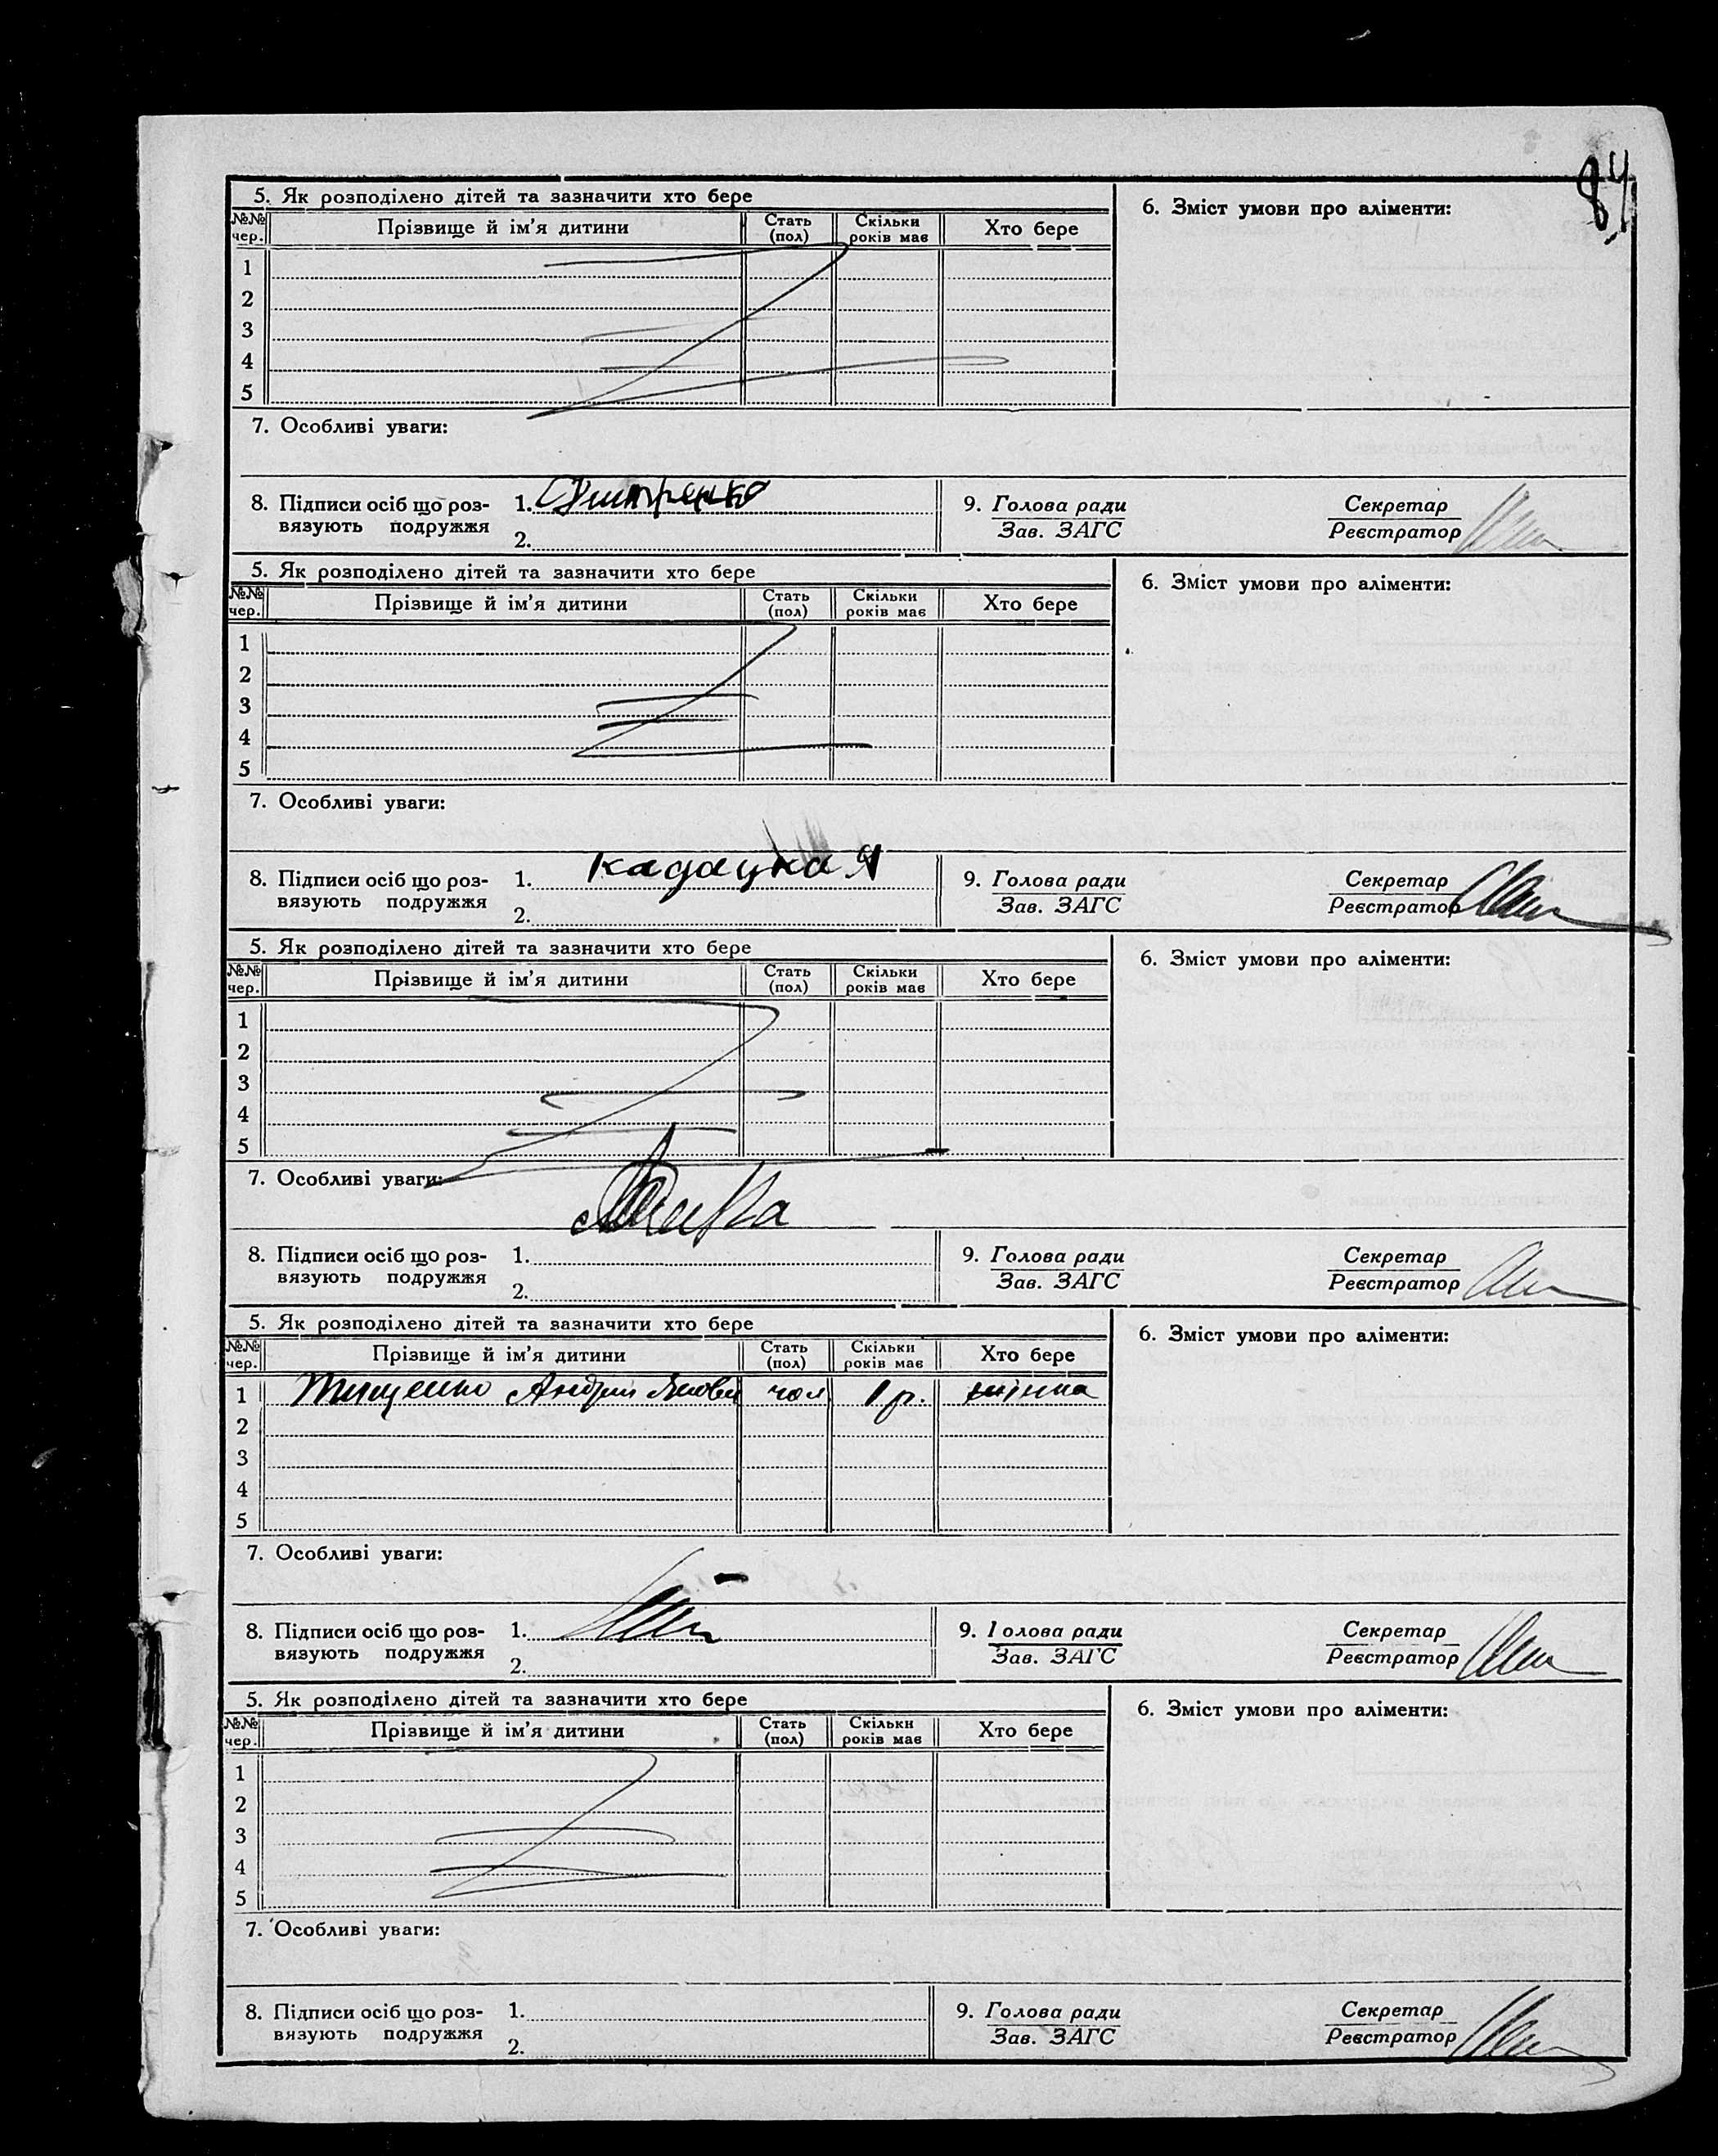 84
5. Як розподілено дітей та зазначити хто бере
6. Зміст умови про аліменти:
№№ чер. Прізвище й ім'я дитини Стать (пол) Скільки років має Хто бере
1
2
3
4
5
7. Особливі уваги:
8. Підписи осіб що роз- 1. Дмитренко 9. Голова ради Секретар
вязують подружжя 2. Зав. ЗАГС Реєстратор
5. Як розподілено дітей та зазначити хто бере
6. Зміст умови про аліменти:
№№ чер. Прізвище й ім'я дитини Стать (пол) Скільки років має Хто бере
1
2
3
4
5
7. Особливі уваги:
8. Підписи осіб що роз- 1. Кадацка 9. Голова ради Секретар
вязують подружжя 2. Зав. ЗАГС Реєстратор
5. Як розподілено дітей та зазначити хто бере
6. Зміст умови про аліменти:
№№ чер. Прізвище й ім'я дитини Стать (пол) Скільки років має Хто бере
1
2
3
4
5
7. Особливі уваги:
8. Підписи осіб що роз- 1. 9. Голова ради Секретар
вязують подружжя 2. Зав. ЗАГС Реєстратор
5. Як розподілено дітей та зазначити хто бере
6. Зміст умови про аліменти:
№№ чер. Прізвище й ім'я дитини Стать (пол) Скільки років має Хто бере
1 Тищенко Андрій чол 1 р. жінка
2
3
4
5
7. Особливі уваги:
8. Підписи осіб що роз- 1. 9. Голова ради Секретар
вязують подружжя 2. Зав. ЗАГС Реєстратор
5. Як розподілено дітей та зазначити хто бере
6. Зміст умови про аліменти:
№№ чер. Прізвище й ім'я дитини Стать (пол) Скільки років має Хто бере
1
2
3
4
5
7. Особливі уваги:
8. Підписи осіб що роз- 1. 9. Голова ради Секретар
вязують подружжя 2. Зав. ЗАГС Реєстратор